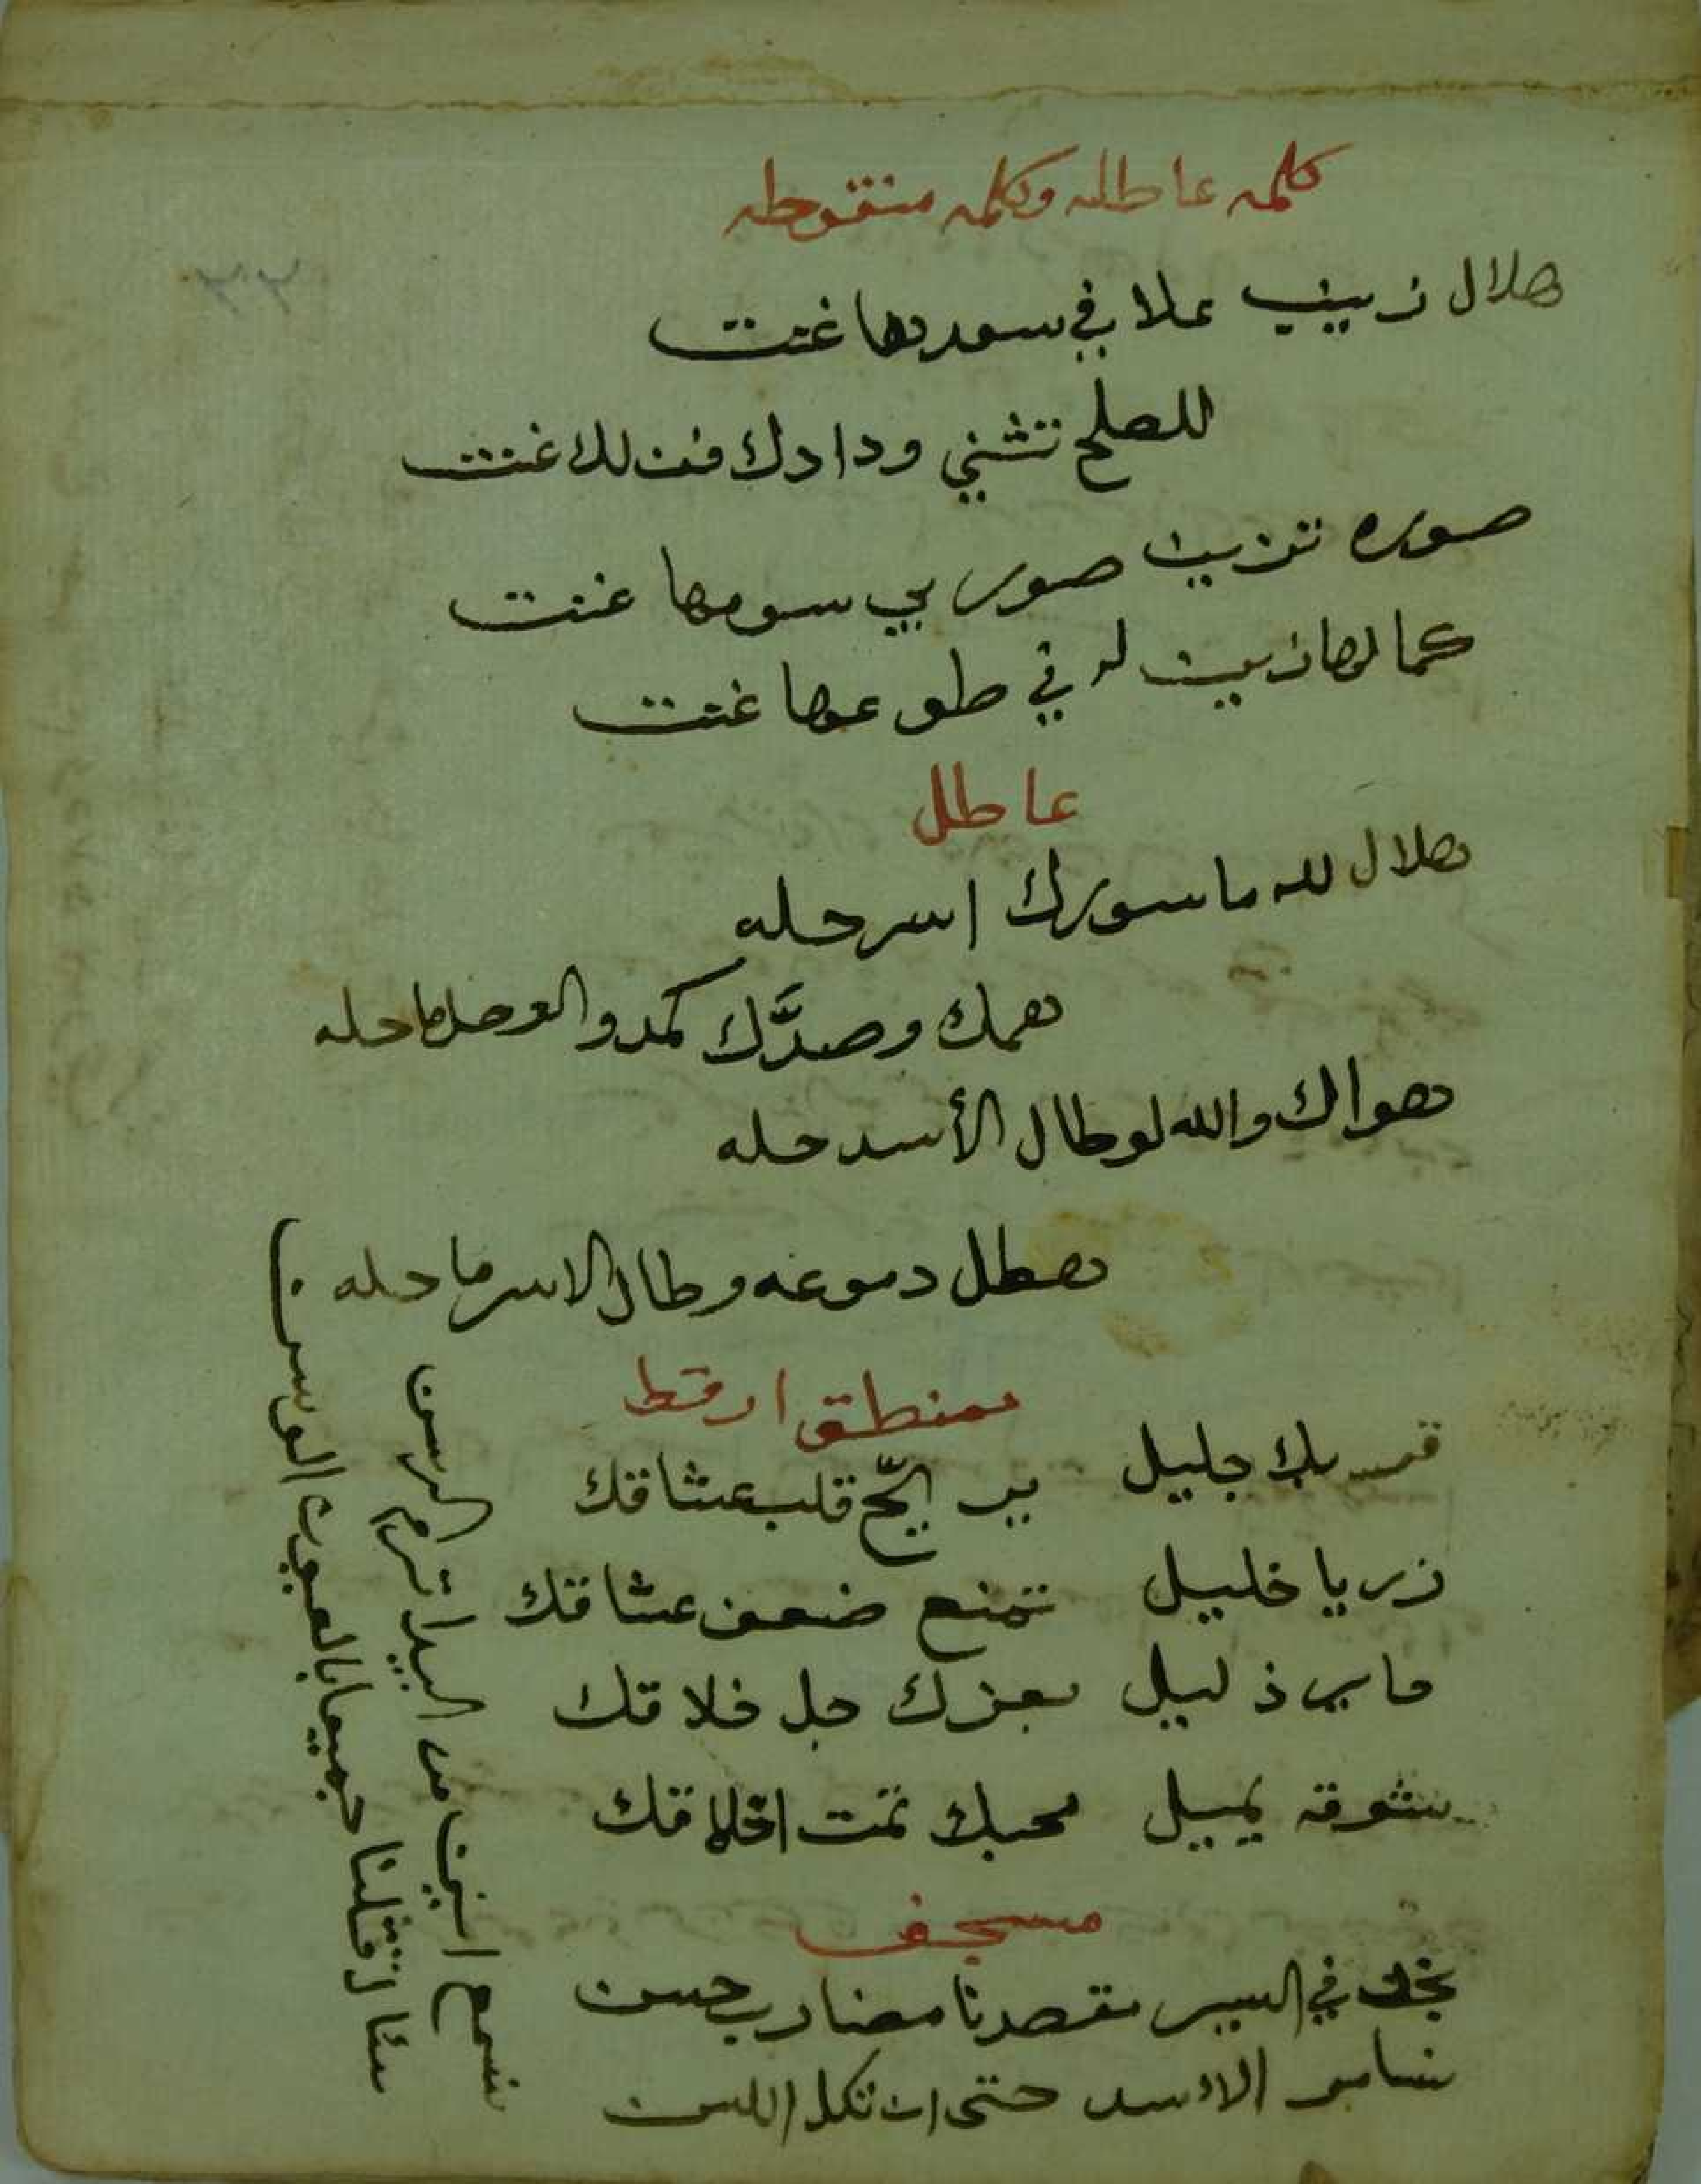 كلمه عاطله وكلمه منقوطه
٢٢
هلال زينب علا في سعدها غنت
للصلح تنثني ودادك فن لك غنت
صوره تزينت صور بي سومها غنت
كما لها زينت له في طوعها غنت
عاطل
هلال لله ما سورك اسر حله
همك وصدَّك كمد والوصل ما حله
هواك والله لو طال الأسد حله
هطل دموعه وطال الاسر ما حله
منطق ارقط
جليل قلب عشاقك
زر يا خليل تمنع ضعف عشاقك
ما بر ذليل بعزك جل خلاقك
شوقه يميل محبك تمت اخلاقك
مسجف
في السير مقصدنا مضارب حسن
الاسد حتى ان تكل اللسن
نسمع انين من البيدا ترم الرسن
جميعا بالعيون الوسن